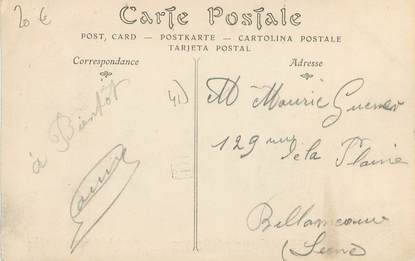 20 €
Carte Postale
POST, CARD — POSTKARTE — CARTOLINA POSTALE
TARJETA POSTAL
Correspondance
Adresse
41)
à Bientôt
M Maurice
129 rue
de la Plaine
Billancourt
(Seine)